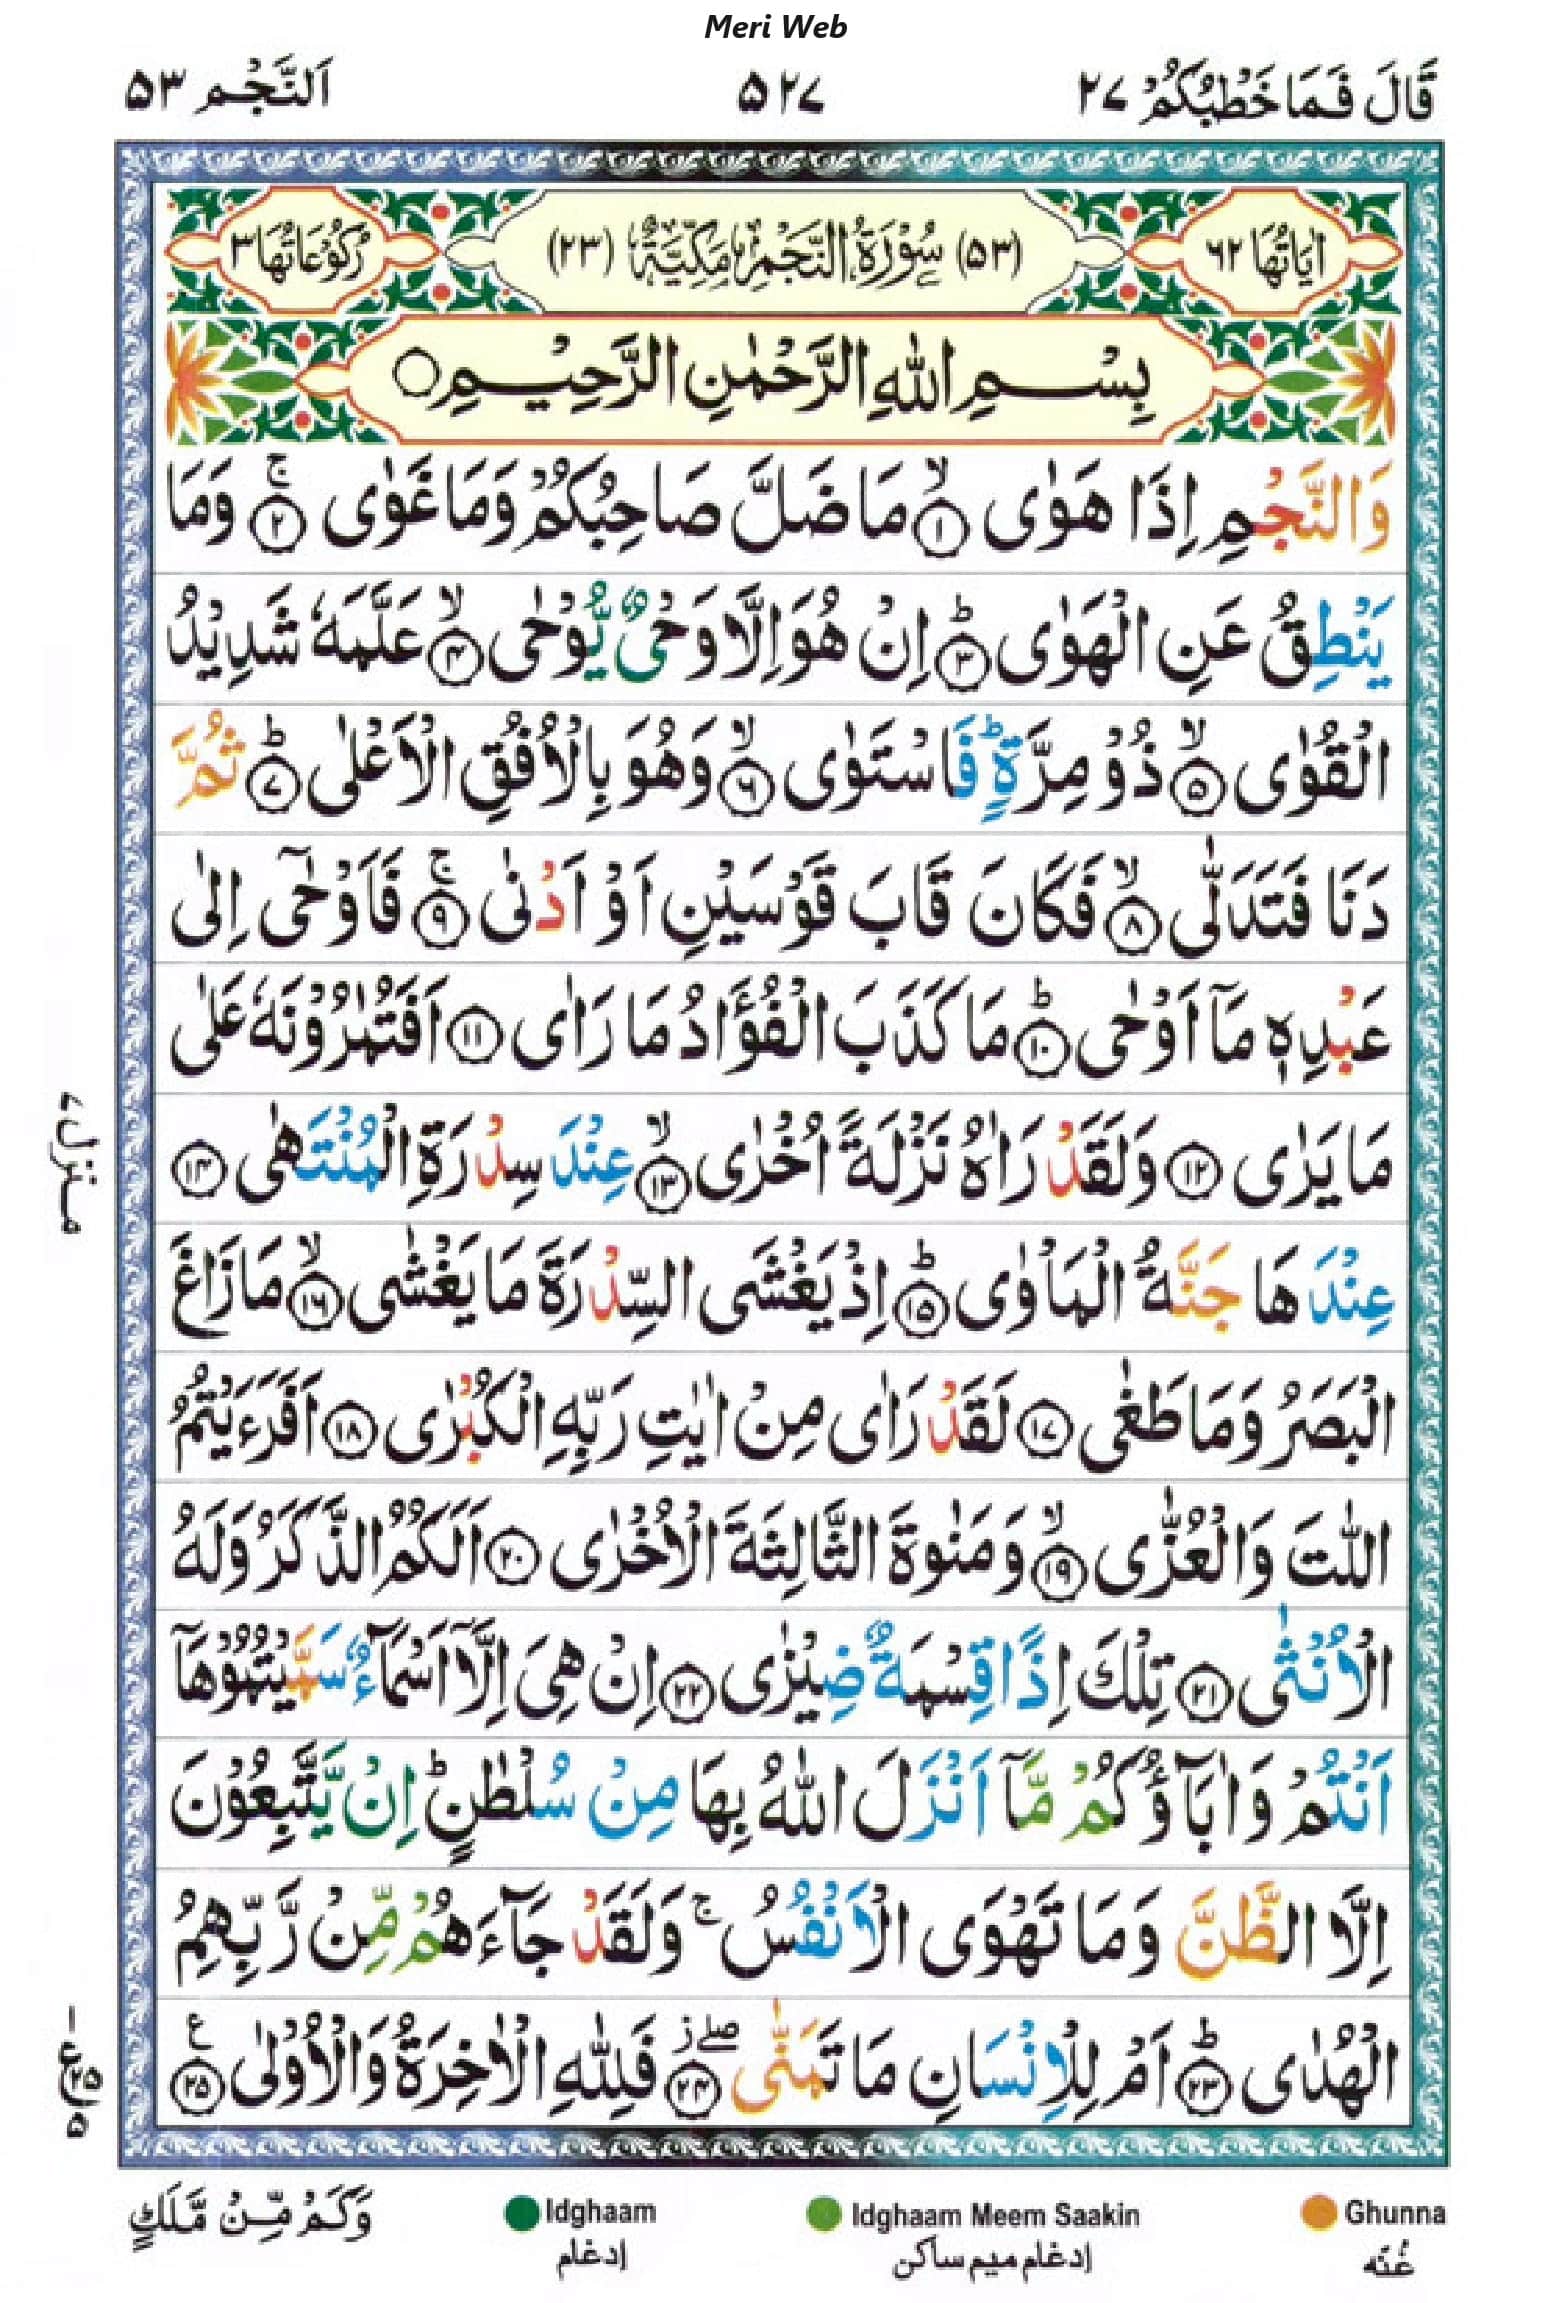 Meri Web
قَالَ فَمَا خَطْبُكُمْ ۲۷
۵۲۷
اَلنَّجْم ۵۳
اٰیَاتُهَا ۶۲
(۵۳) سُوْرَةُ النَّجْمِ مَكِّيَّةٌ (۲۳)
رُكُوْعَاتُهَا ۳
بِسْمِ اللهِ الرَّحْمٰنِ الرَّحِيْمِ ○
وَالنَّجْمِ اِذَا هَوٰى ۙ﴿۱﴾ مَا ضَلَّ صَاحِبُكُمْ وَمَا غَوٰى ۚ﴿۲﴾ وَمَا
يَنْطِقُ عَنِ الْهَوٰى ؕ﴿۳﴾ اِنْ هُوَ اِلَّا وَحْىٌ يُّوْحٰى ۙ﴿۴﴾ عَلَّمَهٗ شَدِيْدُ
الْقُوٰى ۙ﴿۵﴾ ذُوْ مِرَّةٍ ؕ فَاسْتَوٰى ۙ﴿۶﴾ وَهُوَ بِالْاُفُقِ الْاَعْلٰى ؕ﴿۷﴾ ثُمَّ
دَنَا فَتَدَلّٰى ۙ﴿۸﴾ فَكَانَ قَابَ قَوْسَيْنِ اَوْ اَدْنٰى ۚ﴿۹﴾ فَاَوْحٰٓى اِلٰى
عَبْدِهٖ مَاۤ اَوْحٰى ؕ﴿۱۰﴾ مَا كَذَبَ الْفُؤَادُ مَا رَاٰى ﴿۱۱﴾ اَفَتُمٰرُوْنَهٗ عَلٰى
مَا يَرٰى ﴿۱۲﴾ وَلَقَدْ رَاٰهُ نَزْلَةً اُخْرٰى ۙ﴿۱۳﴾ عِنْدَ سِدْرَةِ الْمُنْتَهٰى ﴿۱۴﴾
عِنْدَ هَا جَنَّةُ الْمَاْوٰى ؕ﴿۱۵﴾ اِذْ يَغْشَى السِّدْرَةَ مَا يَغْشٰى ۙ﴿۱۶﴾ مَا زَاغَ
الْبَصَرُ وَمَا طَغٰى ﴿۱۷﴾ لَقَدْ رَاٰى مِنْ اٰيٰتِ رَبِّهِ الْكُبْرٰى ﴿۱۸﴾ اَفَرَءَيْتُمُ
اللّٰتَ وَالْعُزّٰى ۙ﴿۱۹﴾ وَمَنٰوةَ الثَّالِثَةَ الْاُخْرٰى ﴿۲۰﴾ اَلَكُمُ الذَّكَرُ وَلَهُ
الْاُنْثٰى ﴿۲۱﴾ تِلْكَ اِذًا قِسْمَةٌ ضِيْزٰى ﴿۲۲﴾ اِنْ هِىَ اِلَّاۤ اَسْمَآءٌ سَمَّيْتُمُوْهَاۤ
اَنْتُمْ وَاٰبَآؤُكُمْ مَّاۤ اَنْزَلَ اللهُ بِهَا مِنْ سُلْطٰنٍ ؕ اِنْ يَّتَّبِعُوْنَ
اِلَّا الظَّنَّ وَمَا تَهْوَى الْاَنْفُسُ ۚ وَلَقَدْ جَآءَهُمْ مِّنْ رَّبِّهِمُ
الْهُدٰى ؕ﴿۲۳﴾ اَمْ لِلْاِنْسَانِ مَا تَمَنّٰى ۖز﴿۲۴﴾ فَلِلّٰهِ الْاٰخِرَةُ وَالْاُوْلٰى ﴿۲۵﴾ ع
منزل ۷
وَكَمْ مِّنْ مَّلَكٍ
Idghaam
ادغام
Idghaam Meem Saakin
ادغام میم ساکن
Ghunna
غُنّه